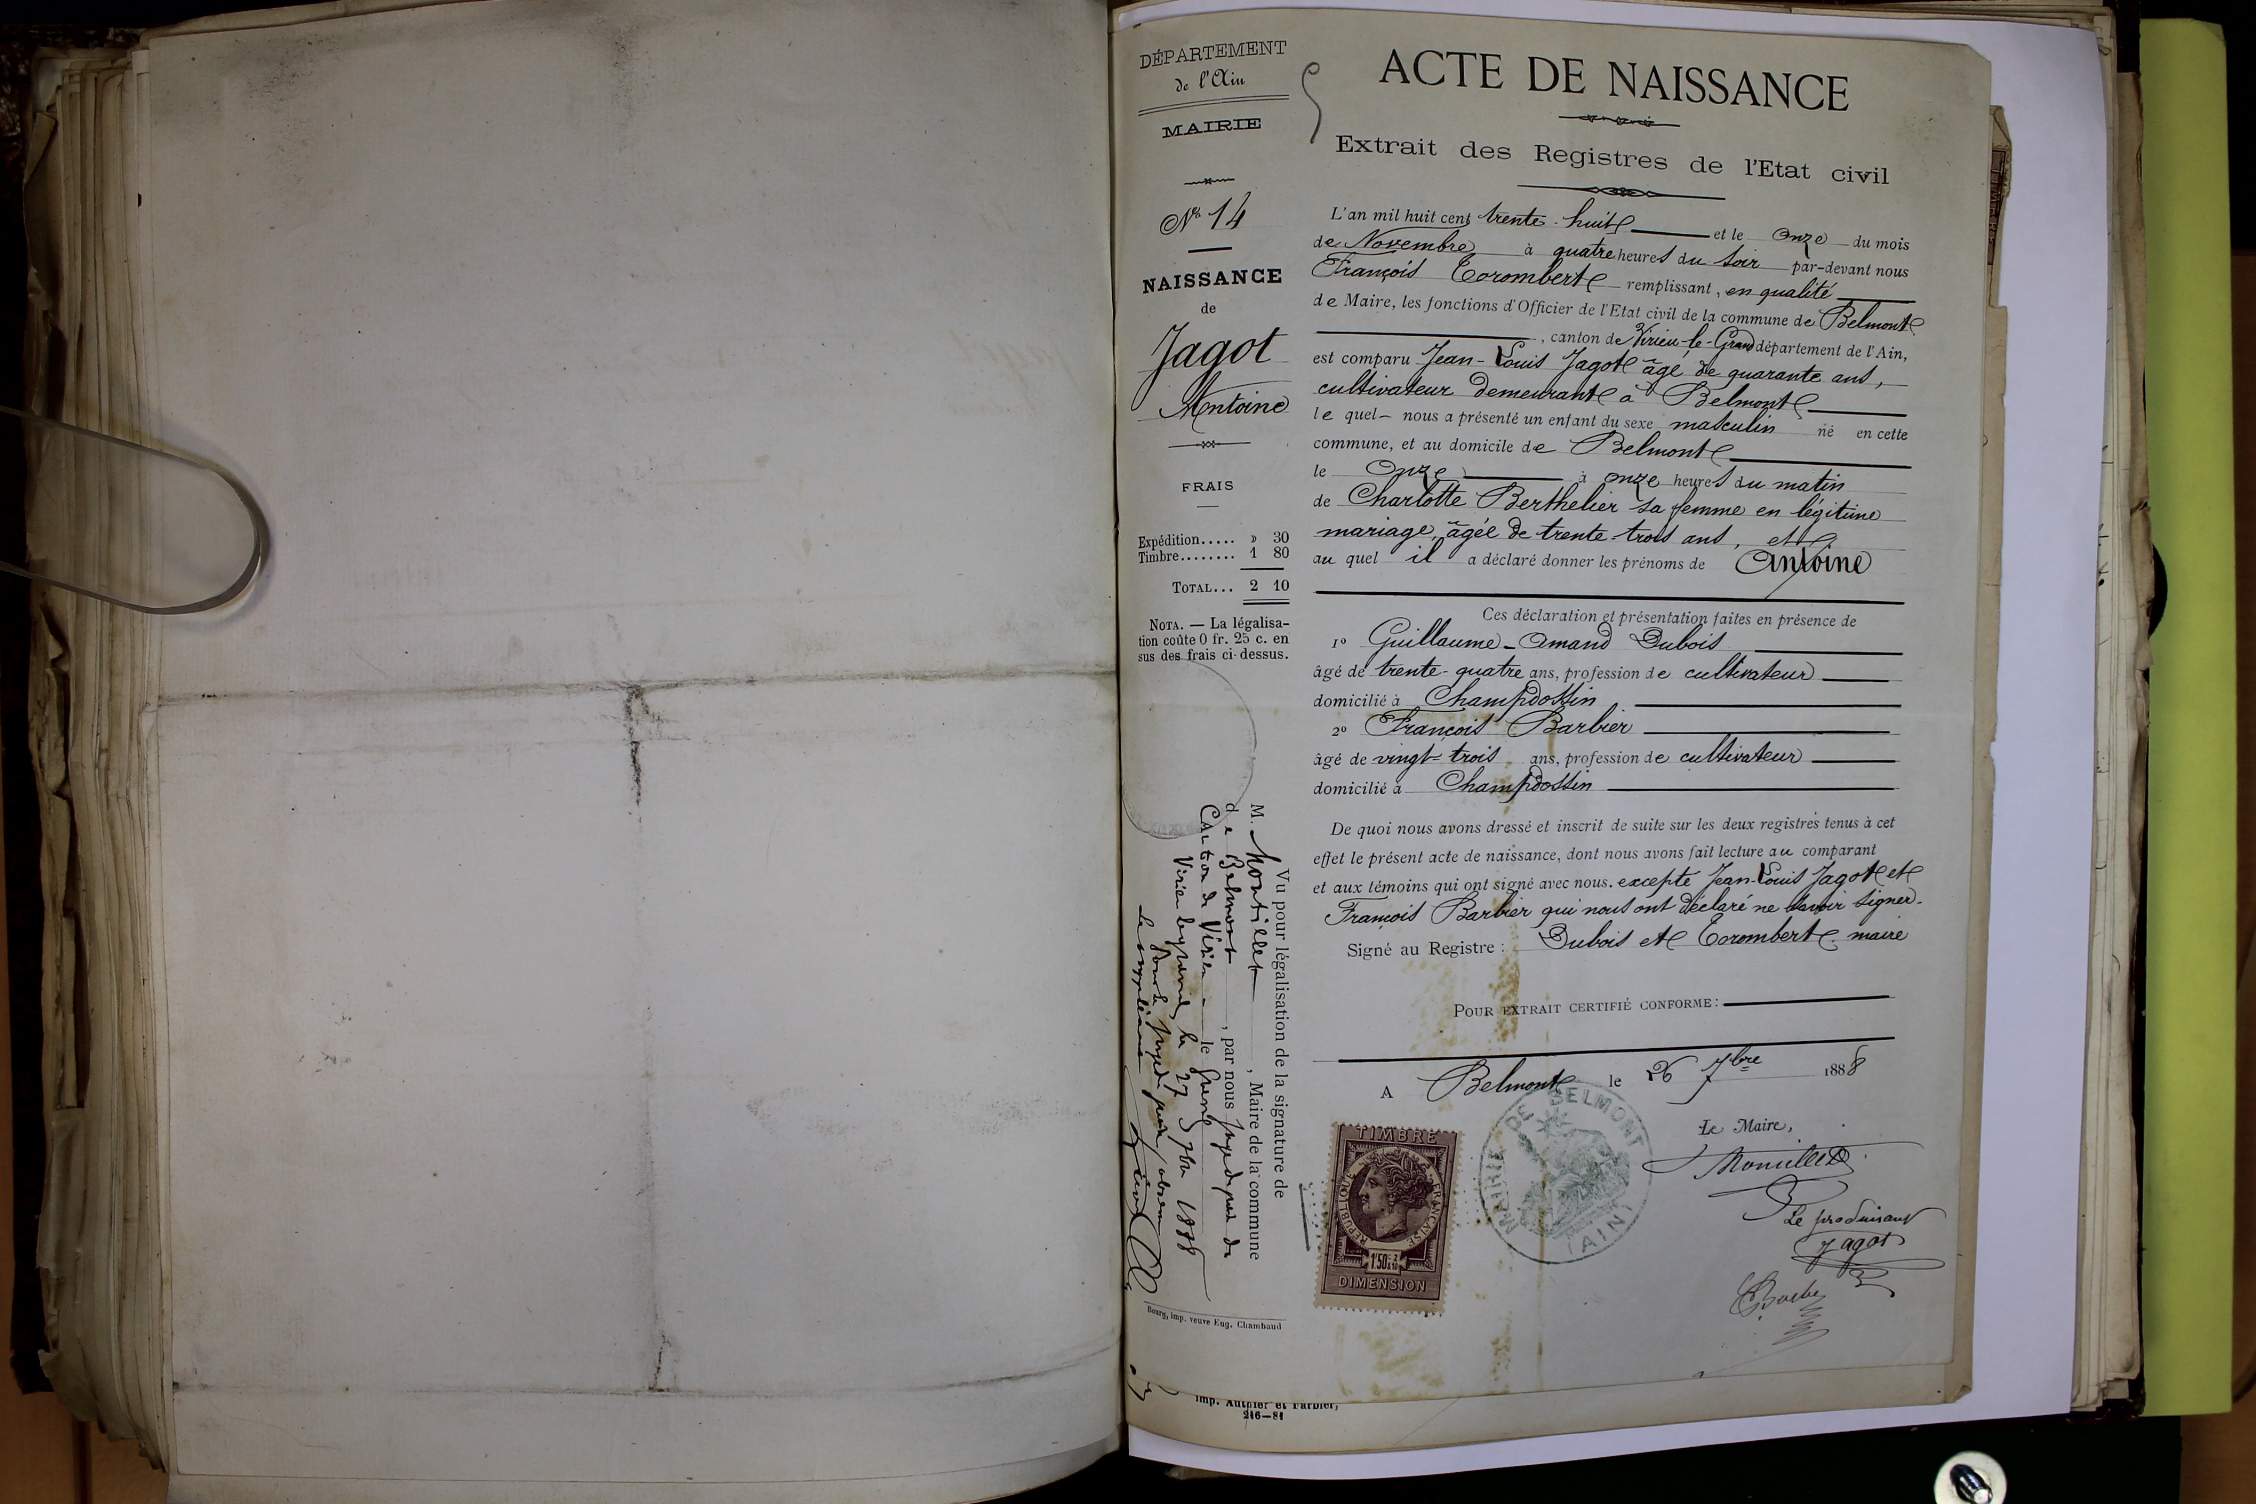 DÉPARTEMENT
de l'Ain
MAIRIE
N° 14
NAISSANCE
de
Jagot
Antoine
FRAIS
Expédition..... » 30
Timbre........ 1 80
TOTAL... 2 10
NOTA. — La légalisa-
tion coûte 0 fr. 25 c. en
sus des frais ci-dessus.
ACTE DE NAISSANCE
Extrait des Registres de l'Etat civil
L'an mil huit cent trente-huit et le onze du mois
de Novembre à quatre heures du soir par-devant nous
François Corombert remplissant, en qualité
de Maire, les fonctions d'Officier de l'Etat civil de la commune de Belmont
, canton de Virieu-le-Grand département de l'Ain,
est comparu Jean-Louis Jagot âgé de quarante ans,
cultivateur demeurant à Belmont
le quel nous a présenté un enfant du sexe masculin né en cette
commune, et au domicile de Belmont
le Onze à onze heures du matin
de Charlotte Berthelier sa femme en légitime
mariage, âgée de trente-trois ans, et
au quel il a déclaré donner les prénoms de Antoine
Ces déclaration et présentation faites en présence de
1° Guillaume-Amand Dubois
âgé de trente-quatre ans, profession de cultivateur
domicilié à Champdossin
2° François Barbier
âgé de vingt-trois ans, profession de cultivateur
domicilié à Champdossin
De quoi nous avons dressé et inscrit de suite sur les deux registres tenus à cet
effet le présent acte de naissance, dont nous avons fait lecture au comparant
et aux témoins qui ont signé avec nous. excepté Jean-Louis Jagot et
François Barbier qui nous ont déclaré ne savoir signer.
Signé au Registre : Dubois et Corombert maire
POUR EXTRAIT CERTIFIÉ CONFORME :
A Belmont le 26 7bre 1888
Le Maire,
Montillet
Le produisant
Jagot
TIMBRE
RÉPUBLIQUE FRANÇAISE
1F50c 2/10
DIMENSION
MAIRIE DE BELMONT
(AIN)
Vu pour légalisation de la signature de
M. Montillet, Maire de la commune
de Belmont, par nous Juge de paix du
Canton de Virieu-le Grand
Virieu le grand, le 27 7bre 1888
Pour le Juge de paix, absent
Le suppléant
Bourg, imp. veuve Eug. Chambaud
Imp. Authier et Barbier,
216—81